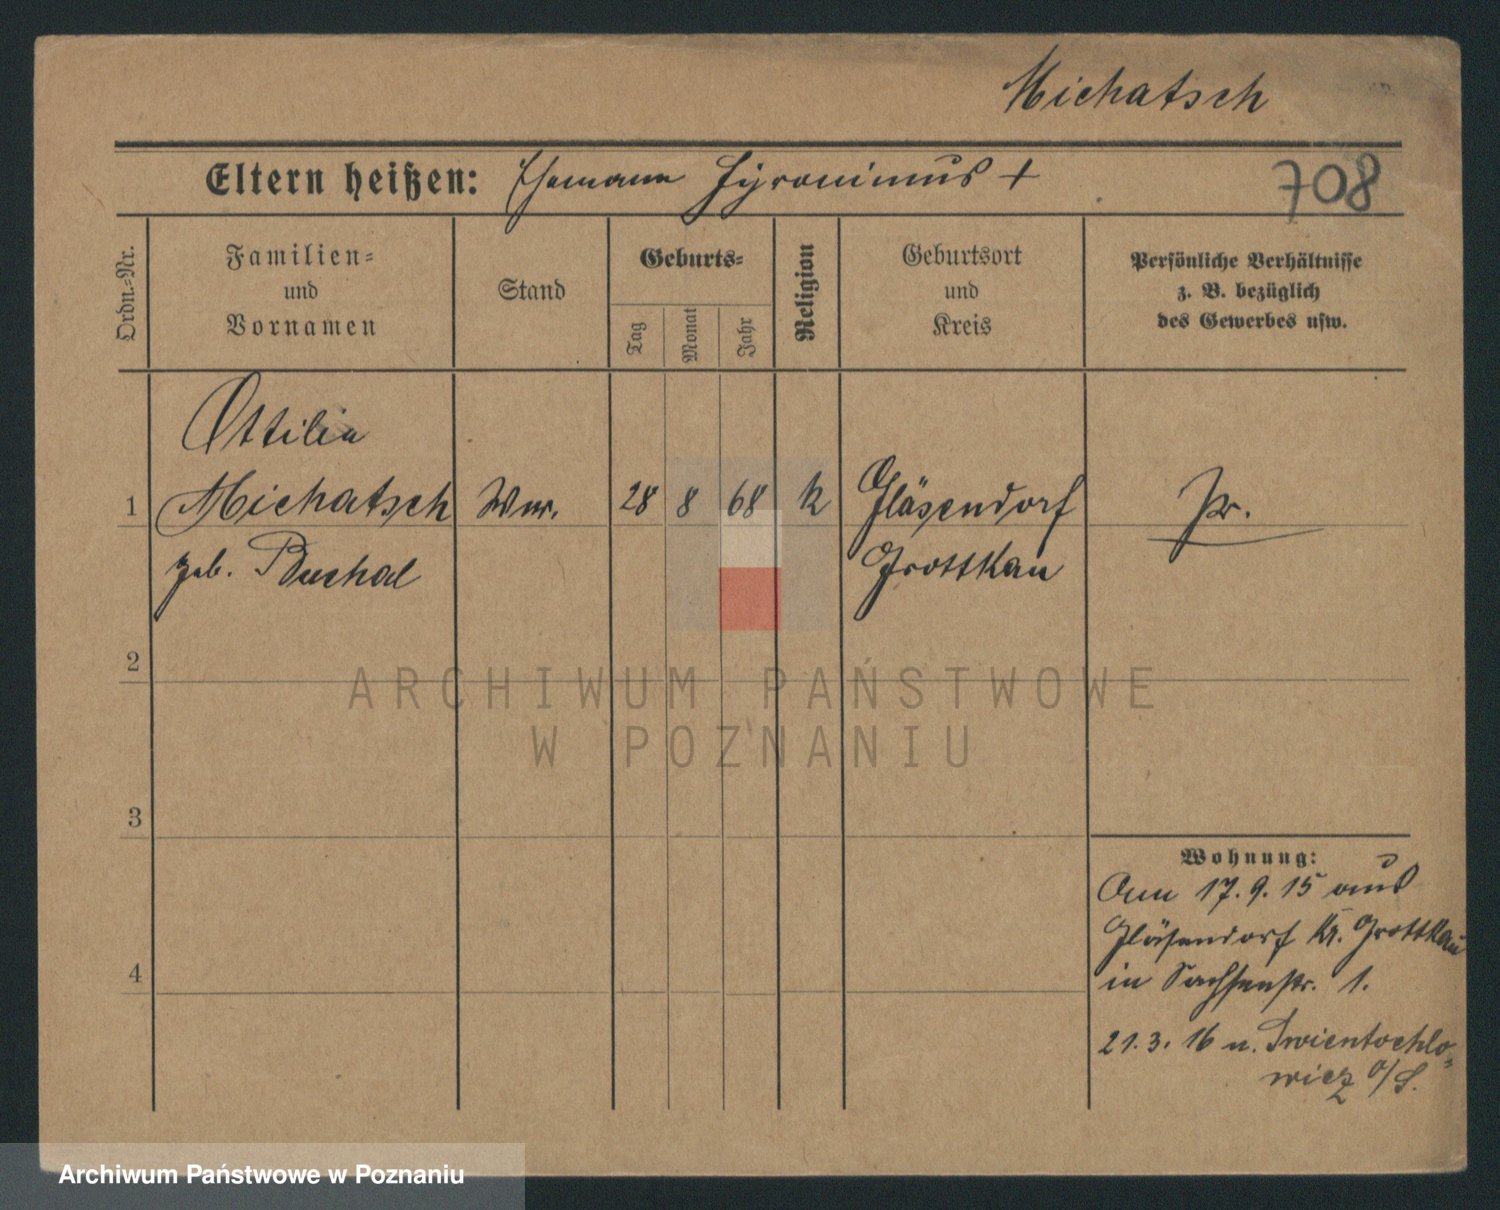 Michatsch
Eltern heißen: Ehemann Hyronimus +
708
Ordn.-Nr.
Familien-
und
Vornamen
Stand
Geburts-
Tag
Monat
Jahr
Religion
Geburtsort
und
Kreis
Persönliche Verhältnisse
z. B. bezüglich
des Gewerbes usw.
Ottilie
1 Michatsch Wwe. 28 8 68 k Gläsendorf Pr.
geb. Buchal Grottkau
2
ARCHIWUM PAŃSTWOWE
W POZNANIU
3
Wohnung:
Am 17.9.15 aus
Gläsendorf Kr. Grottkau
4
in Sachsenstr. 1.
21.3.16 n. Swientochlo-
wicz O/S.
Archiwum Państwowe w Poznaniu